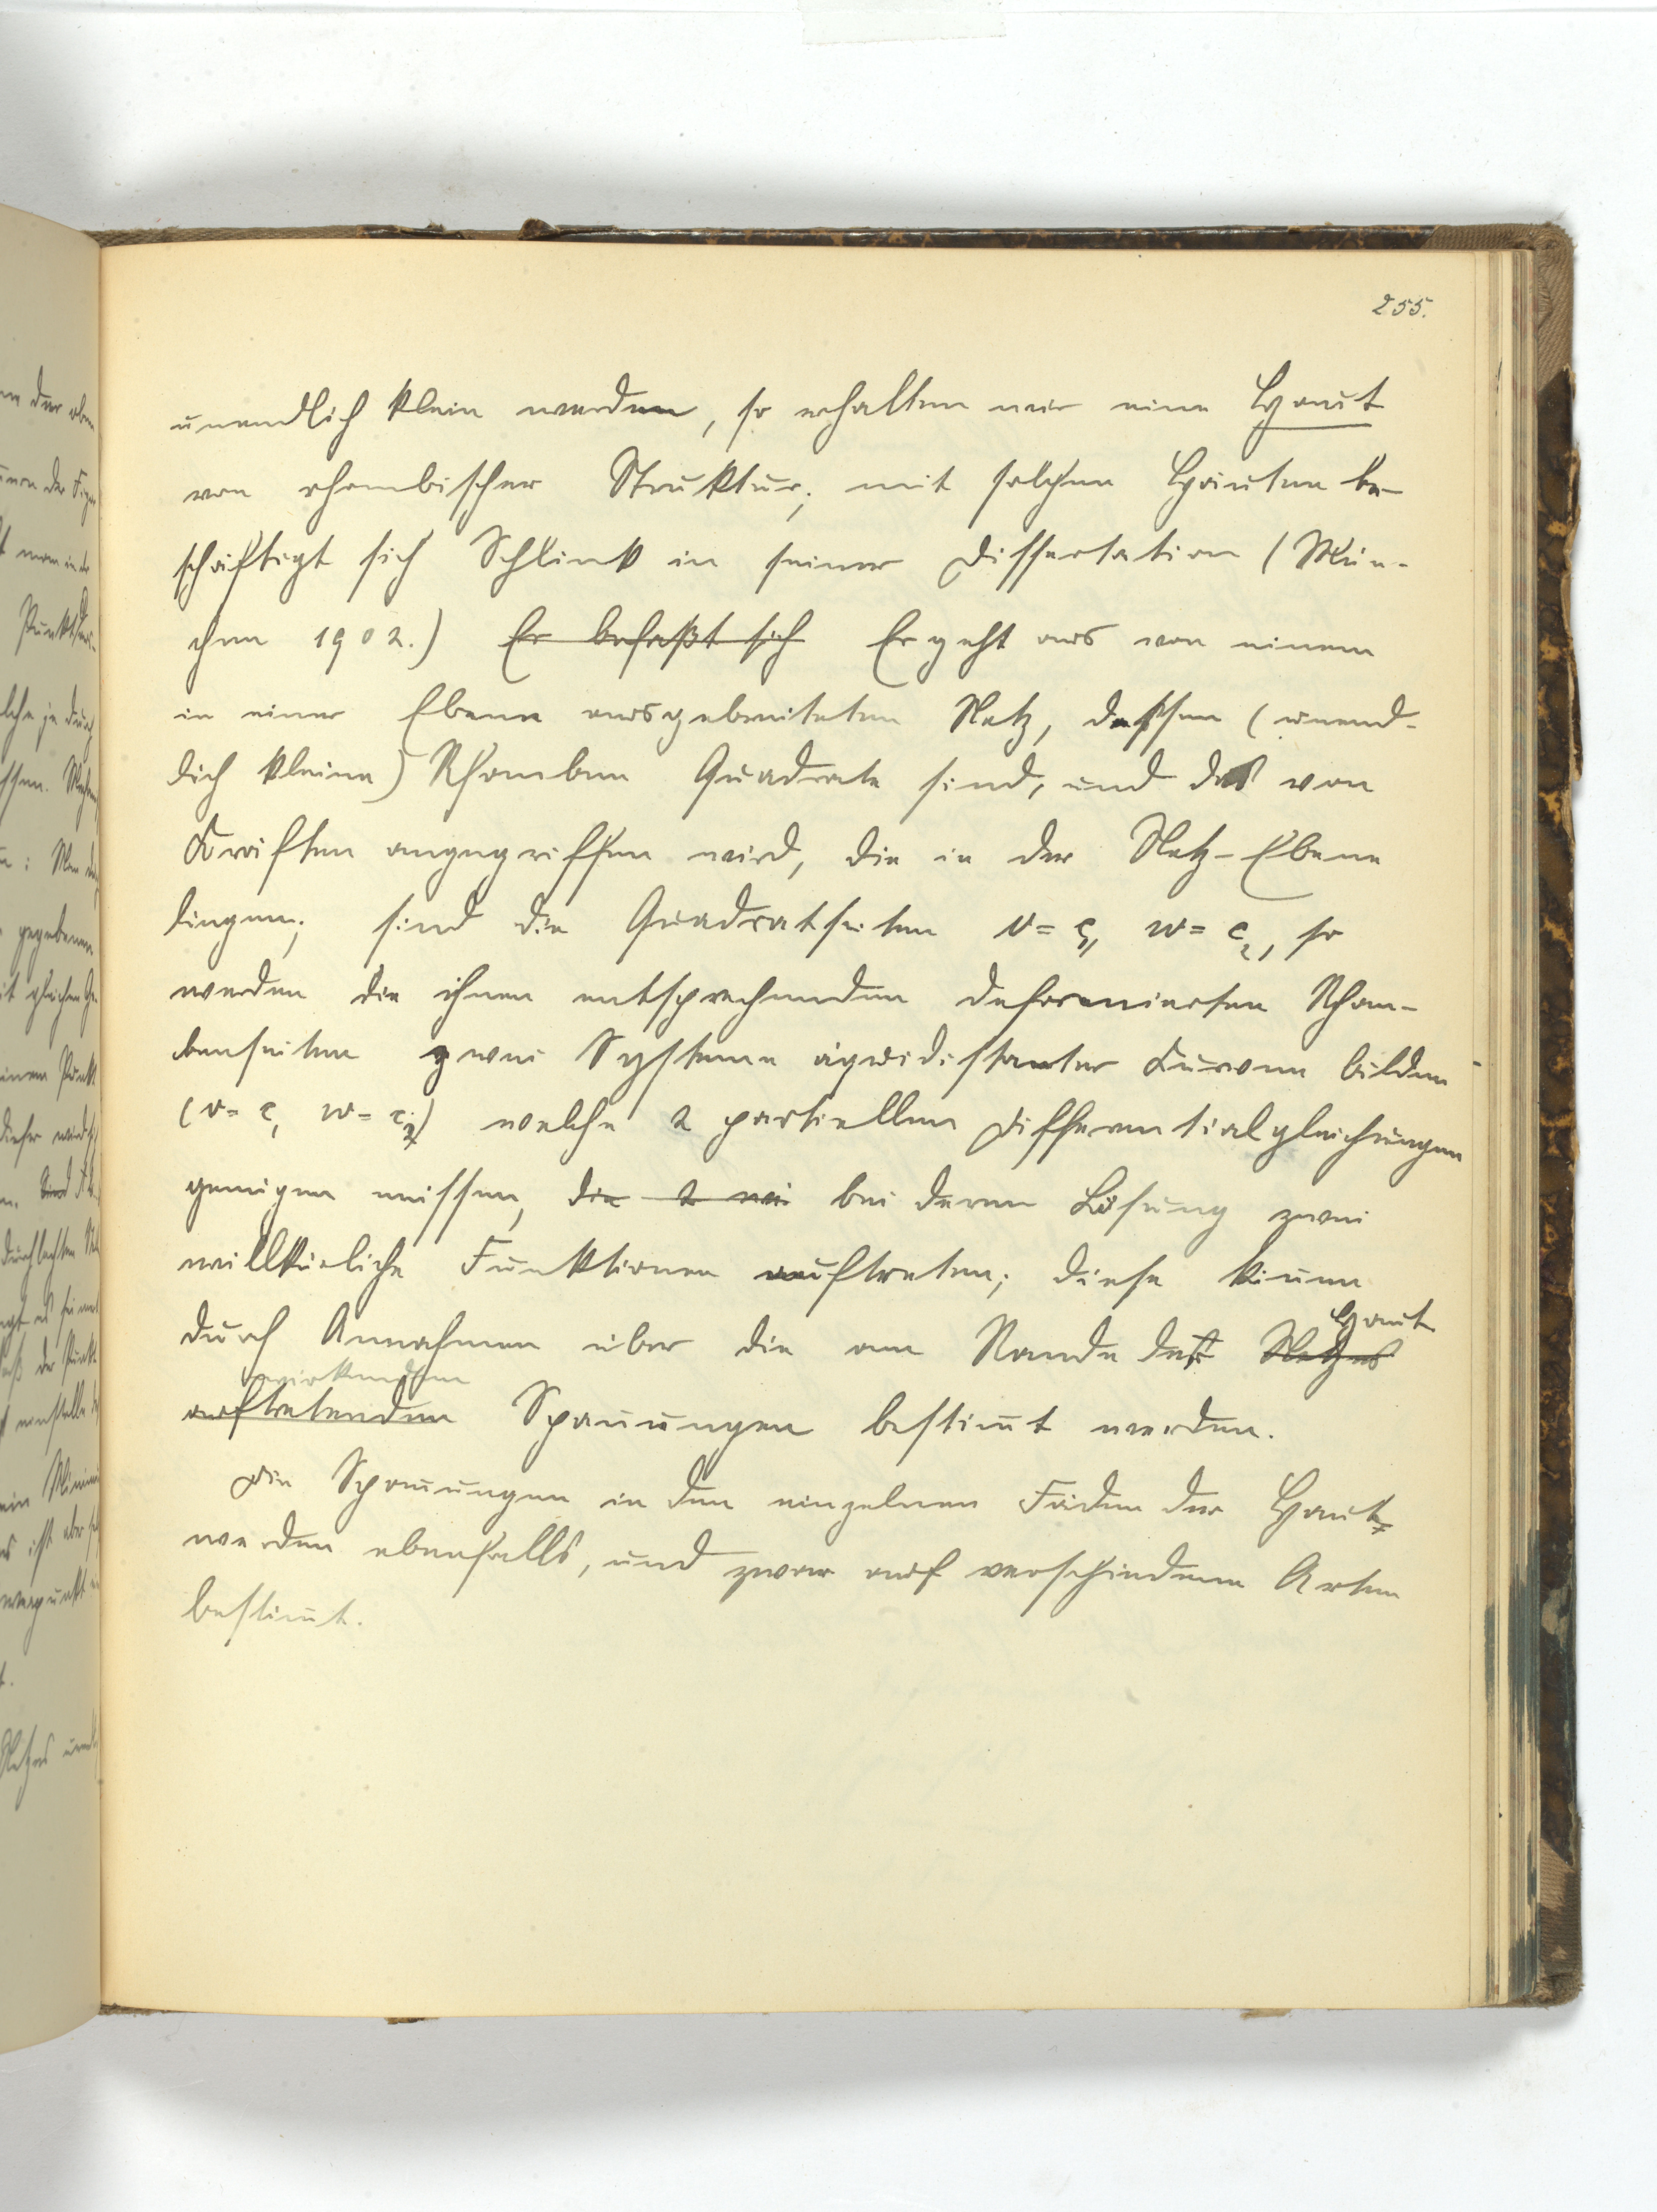 255.
unendlich klein werden, so erhalten wir eine Haut
von rhombischer Struktur; mit solchen Häuten be-
schäftigt sich Schlink in seiner Dissertation (Mün-
chen 1902.) Er befaßt sich Er geht aus von einem
in einer Ebene ausgebreiteten Netz, dessen (unend-
lich kleine) Rhomben Quadrate sind, und das von
Kräften angegriffen wird, die in der Netz-Ebene
liegen; sind die Quadratseiten v = c₁, w = c₂, so
werden die ihnen entsprechenden deformierten Rhom-
benseiten zwei Systeme äquidistanter Kurven bilden
(v = c₁ w = c₂) welche 2 partiellen Differentialgleichungen
genügen müssen, die 2 wi bei deren Lösung zwei
willkürliche Funktionen auftreten; diese kön̄en
Haut
durch Annahmen über die am Rande der Netzes
wirkenden
auftretenden Span̄ungen bestim̄t werden.
Die Span̄ungen in den einzelnen Fäden der Haut
werden ebenfalls, und zwar auf verschiedene Arten
bestim̄t.